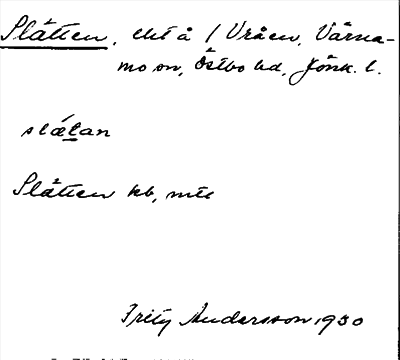 Slåtten, ehl å 1 Vråen, Värna-
mo sn, Östbo hd, Jönk. l.
slåtan
Slåtten kb, mtl
Fritz Andersson 1930